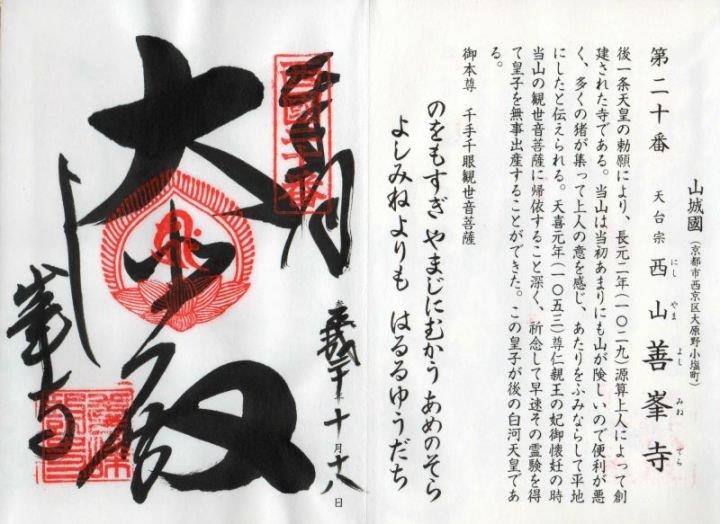 山城國(京都市西京区大原野小塩町)
第二十番 天台宗 西山善峯寺
にし やま よし みね でら
後一条天皇の勅願により、長元二年(一〇二九)源算上人によって創
建された寺である。当山は当初あまりにも山が険しいので便利が悪
く、多くの猪が集って上人の意を感じ、あたりをふみならして平地
にしたと伝えられる。天喜元年(一〇五三)尊仁親王の妃御懐妊の時
当山の観世音菩薩に帰依すること深く、祈念して早速その霊験を得
て皇子を無事出産することができた。この皇子が後の白河天皇であ
る。
御本尊 千手千眼観世音菩薩
のをもすぎ やまじにむかう あめのそら
よしみねよりも はるるゆうだち
十月十八日
大悲殿
峯寺